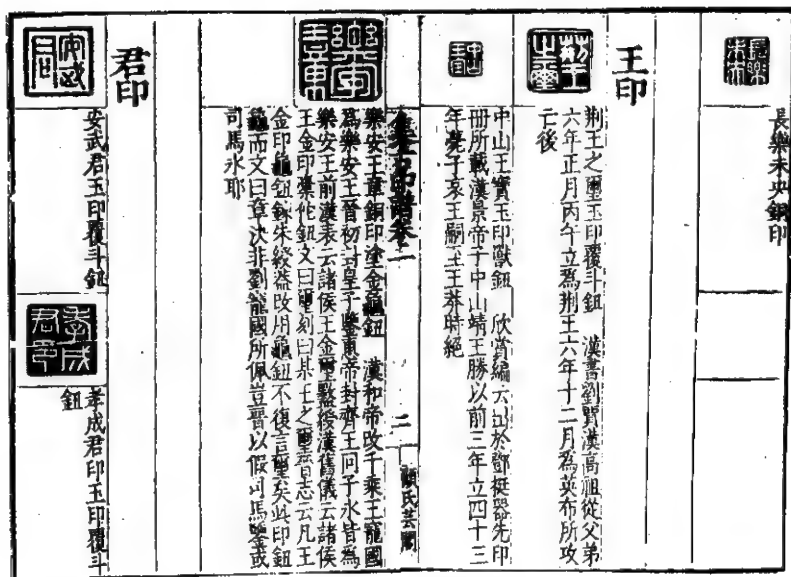 長樂未央
長樂未央銅印
王印
荊王之璽
荊王之璽玉印覆斗鈕 漢書劉賈漢高祖從父弟
六年正月丙午立為荊王六年十二月為英布所攻
亡後
中山王寶玉印獸鈕 欣賞編云出於鄧挺器先印
冊所載漢景帝子中山靖王勝以前三年立四十三
年薨子哀王嗣至王莽時絕
集古印譜卷一
二
顧氏芸閣
樂安王章
樂安王章銅印塗金龜鈕 漢和帝改千乘王寵國
為樂安王晉初封皇子鑒東帝封齊王冏子永皆為
樂安王前漢表云諸侯王金璽盭綬漢舊儀云諸侯
王金印橐佗鈕文曰璽刻曰某王之璽晉志云凡王
金印龜鈕錄朱綬蓋改用龜鈕不復言璽矣此印鈕
龜而文曰章決非劉寵國所佩豈晉以假司馬鑒或
司馬永耶
君印
安武君
安武君玉印覆斗鈕
孝成君印
孝成君印玉印覆斗
鈕